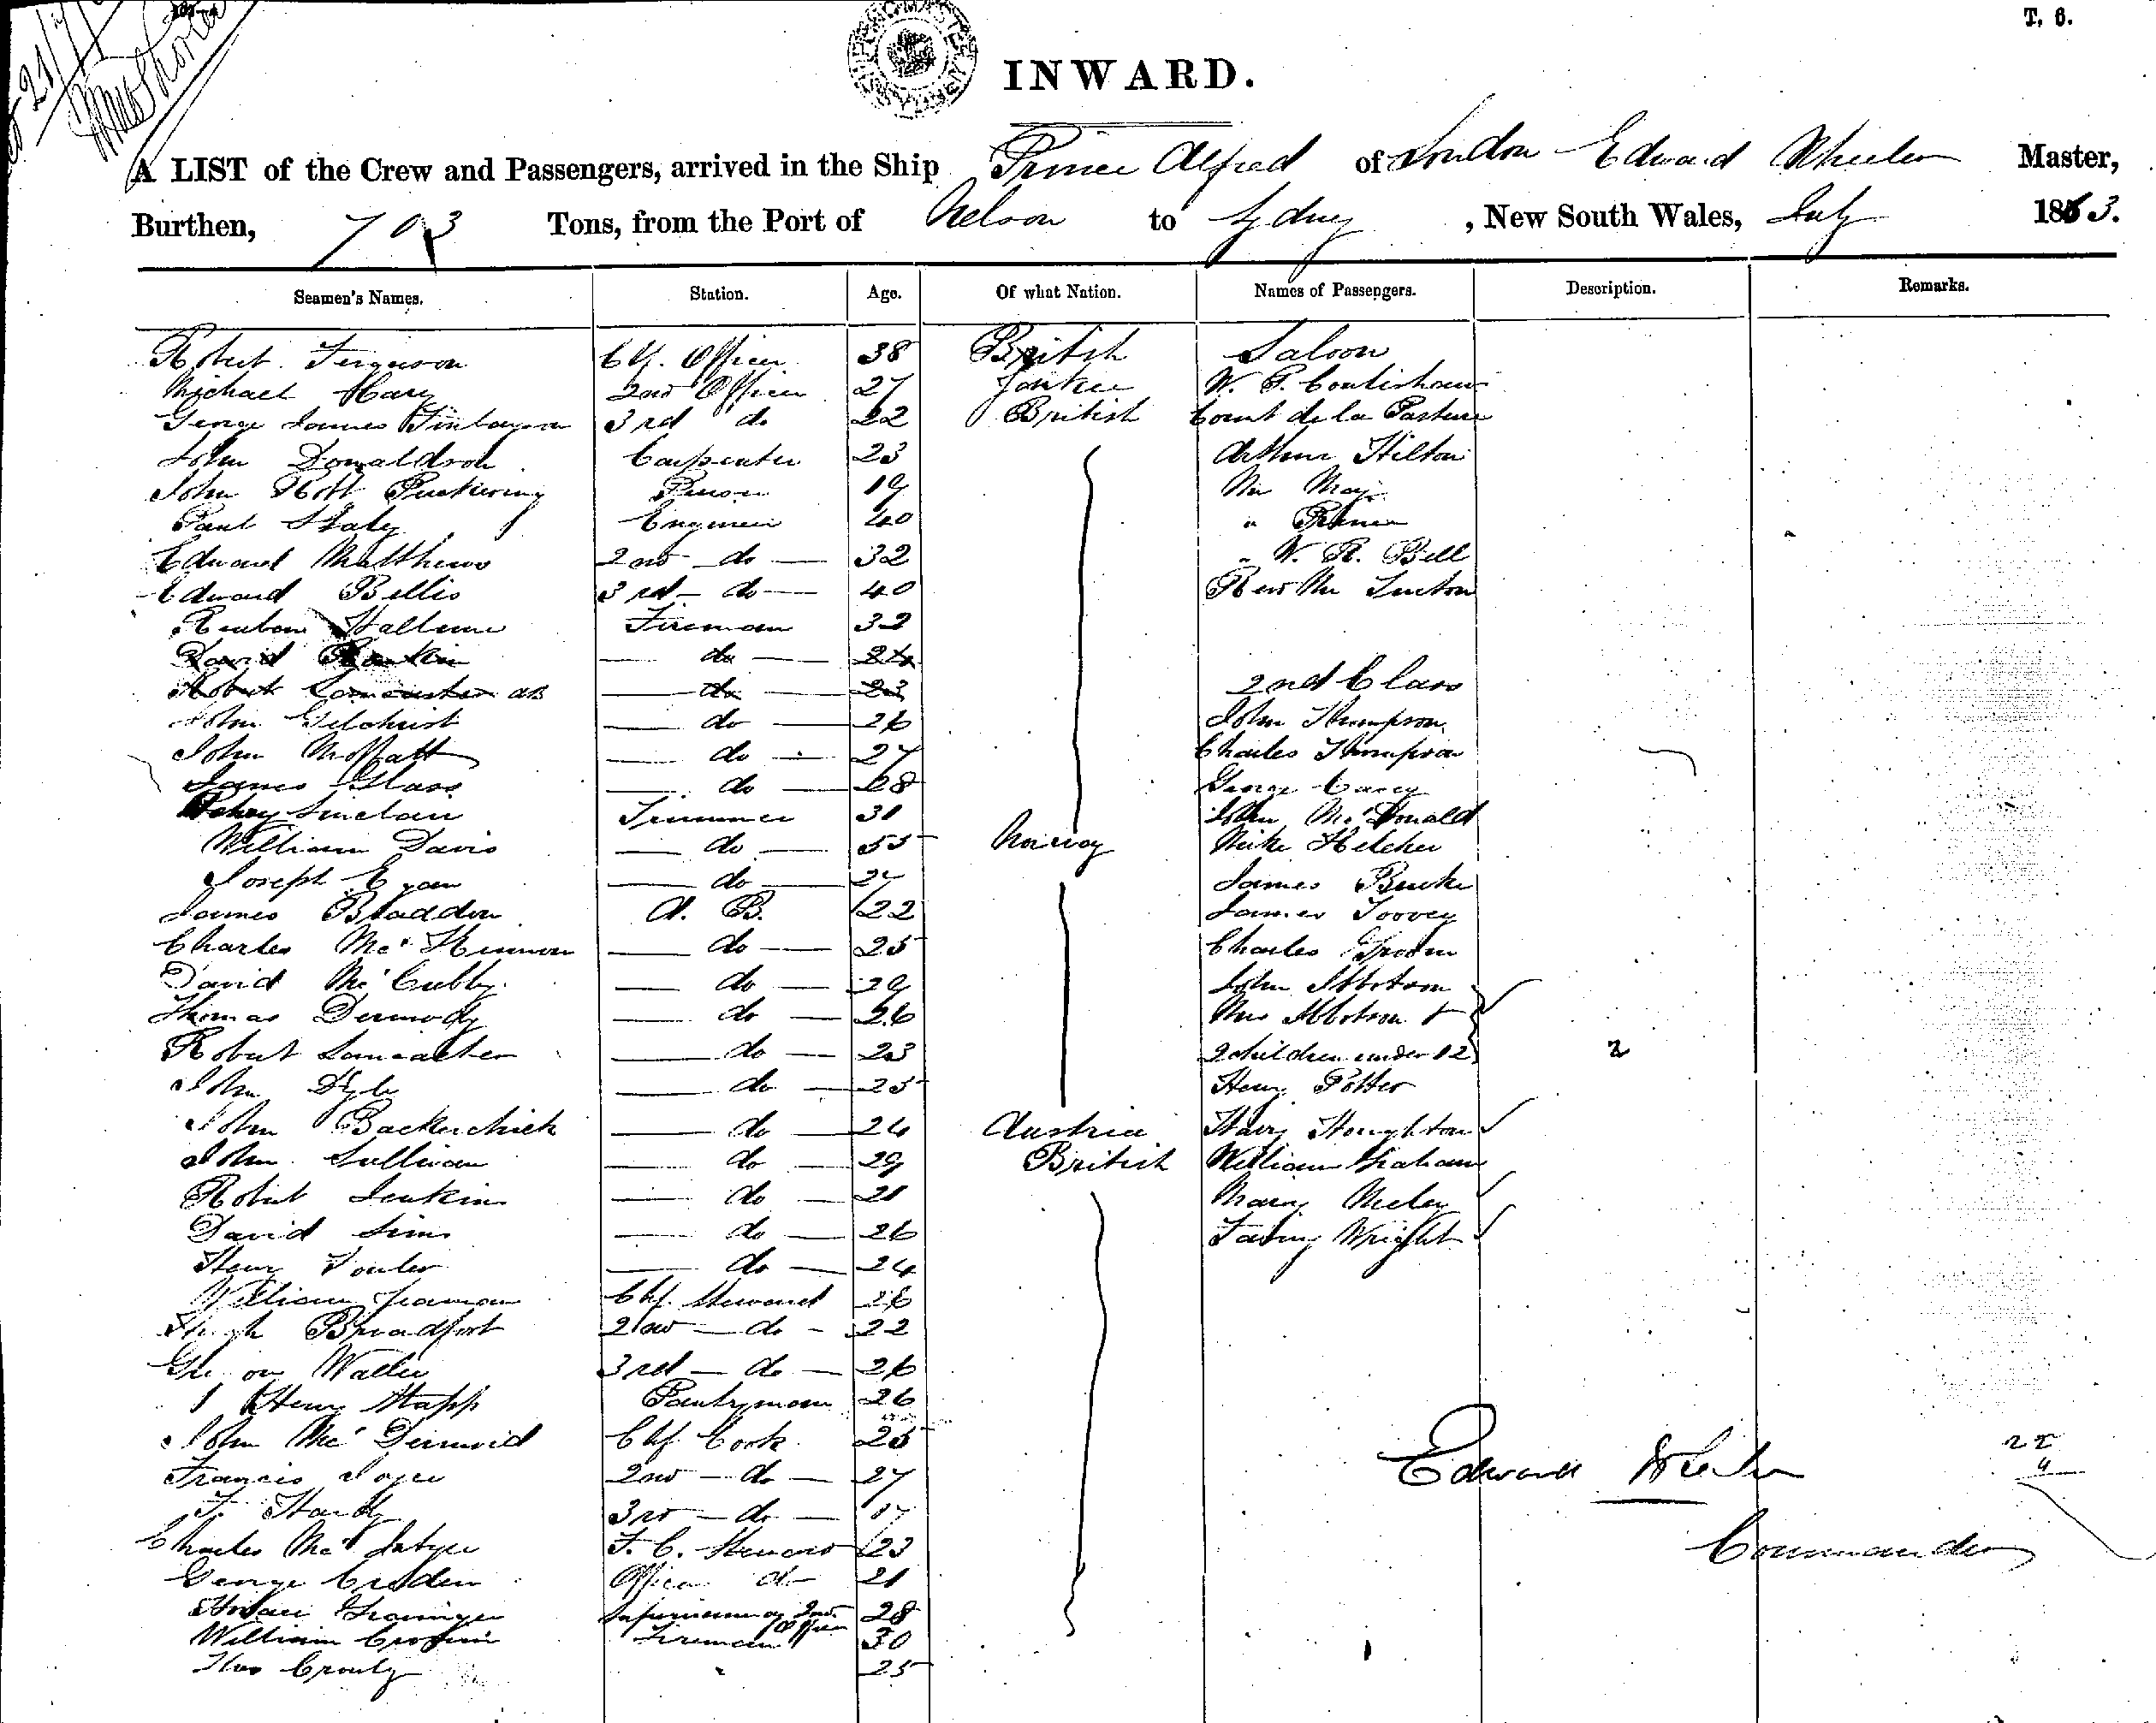 T. 6.
INWARD.
A LIST of the Crew and Passengers, arrived in the Ship Prince Alfred of London Edward Wheeler Master,
Burthen, 703 Tons, from the Port of Nelson to Sydney, New South Wales, July 1863.
Seamen's Names. Station. Age. Of what Nation. Names of Passengers. Description. Remarks.
Robert Ferguson Chf. Officer 38 British Saloon
Michael Hary 2nd Officer 27 Yankee W. P.
George James Finlayson 3rd do 22 British Count de la Pasture
John Donaldson Carpenter 23 Arthur Hilton
John Robt Puckering Purser 19 Mr May
Paul Engineer 40 "
Edward Matthews 2nd do 32 " W. R. Bell
Edward Bellis 3rd do 40 Rev Mr
Fireman 32
David Rankin do 24
Robert Lancaster AB do 23 2nd Class
John Gilchrist do 26 John Thompson
John Moffatt do 27 Charles Thompson
James Glass do 28 George Carey
Henry Sinclair Trimmer 31 John McDonald
William Davis do 55 Norway Mike
Joseph Egan do James Burke
James Bladdon A. B. 22 James Toovey
Charles McKinnon do 25 Charles Groom
David McCubby do 29 John Ibbotson
Thomas Dermody do 26 Mrs Ibbotson +
Robert Lancaster do 23 2 children under 12 2
John do 25 Henry Potter
John Backerchich do 24 Austria Harry Houghton
John Sullivan do 29 British William Graham
Robert Jenkins do 21 Mary
David Sims do 26 Wright
Henry do 24
William Chf. Steward 26
Hugh Broadfoot 2nd do 22
3rd do 26
Henry Stapp Pantryman 26
John McDermid Chf. Cook 25 Edward Wheeler 22
Francis Joyce 2nd do 27 4
F. Hardy 3rd do 17
Charles McIntyre F. C. Steward 23 Commander
George Croden Officers do 21
Horace Grainger Supernumerary 2nd Officer 28
William Fireman 30
Thos Crouly 25